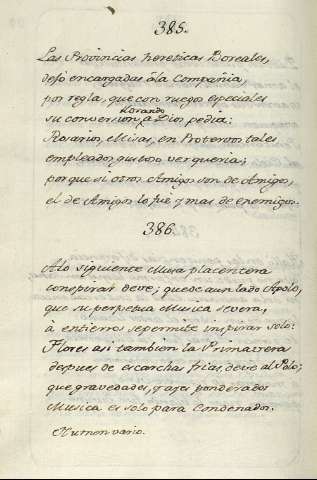 385.
Las Provincias hereticas Boreales,
dejó encargadas à la Compañia,
por regla, que con ruegos especiales
llorando
su conversion, à Dios pedia;
Rosarios, Misas, en Protervos tales
empleados, quiso ver queria;
porque si otros Amigos son de Amigos,
el de Amigos lo fue, y mas de enemigos.
386.
A lo siguiente Musa placentera
conspirar deve; quede a un lado Apolo,
que su perpetua Musica severa,
à entierros se permite inspirar solo:
Flores asi tambien la Primavera
despues de escarchas frias, deve al Polo;
que gravedades, y ayes ponderados
Musica es solo para Condenados.
Numen vario.